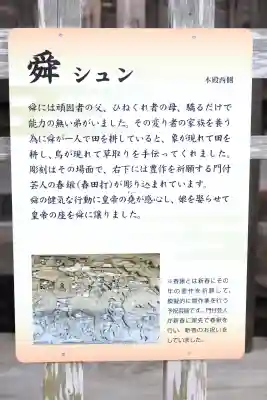 舜 シュン
本殿西側
舜には頑固者の父、ひねくれ者の母、驕るだけで
能力の無い弟がいました。その変り者の家族を養う
為に舜が一人で田を耕していると、象が現れて田を
耕し、鳥が現れて草取りを手伝ってくれました。
彫刻はその場面で、右下には豊作を祈願する門付
芸人の春鍬(春田打)が彫り込まれています。
舜の健気な行動に皇帝の堯が感心し、娘を娶らせて
皇帝の座を舜に譲りました。
※春鍬とは新春にその
年の豊作を祈願して、
模擬的に田作業を行う
予祝芸能です。門付芸人
が新春に家先で春鍬を
行い 新春のお祝いを
していました。